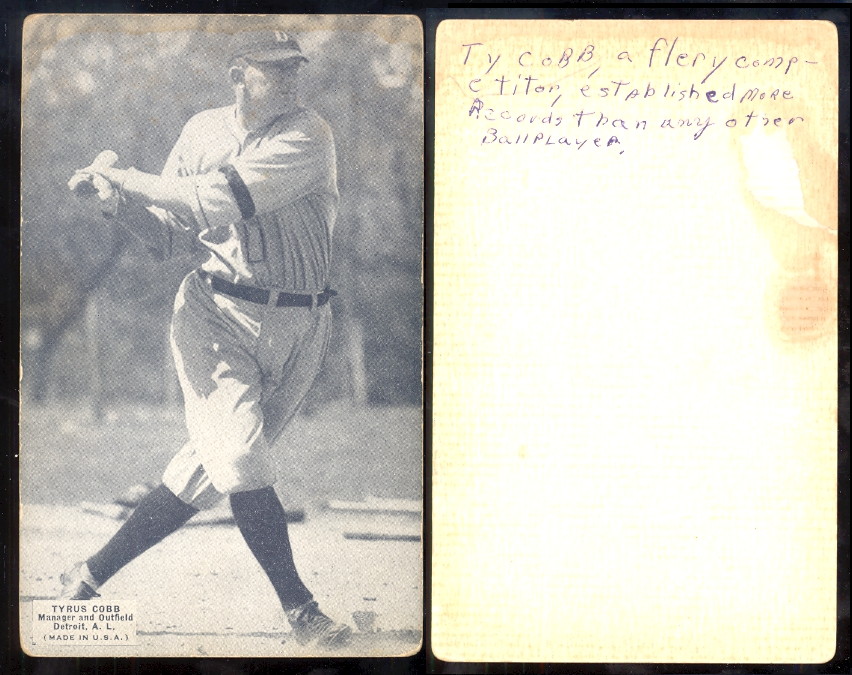 D
TYRUS COBB
Manager and Outfield
Detroit, A. L.
(MADE IN U.S.A.)
Ty COBB, a flery comp-
etitor, established MORE
Records than any other
BallPLayeR.